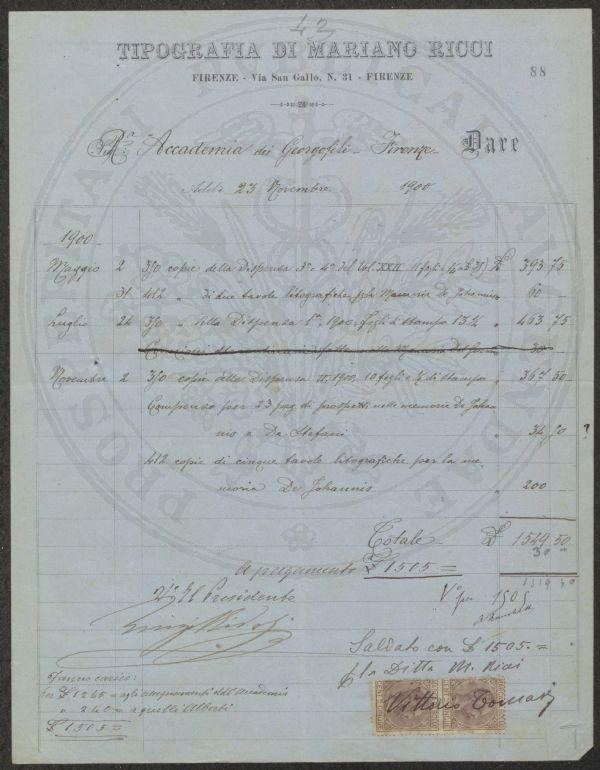 42
TIPOGRAFIA DI MARIANO RICCI
FIRENZE - Via San Gallo, N. 31 - FIRENZE
88
Accademia dei Georgofili - Firenze - Dare
Addì 23 Novembre 1900
1900
Maggio 2 310 copie della Dispensa 3ª 4ª del Vol. XXII £ 393 75
31 412 " di due tavole litografiche Memoria De Johannis " 60 -
Luglio 24 310 " della Dispensa 1ª 1900 fogli di stampo 13 ½ " 463 75
30
Novembre 2 310 copie della Dispensa II 1900 10 fogli e ½ di stampa " 367 50
Compenso per 23 pag. di prospetti nelle memorie De Joha-
nnis e De Stefani " 34 50
?
412 copie di cinque tavole litografiche per la me-
moria De Johannis " 200
Totale £ 1549 50
30 "
1519 50
A pagamento £ 1505 =
Il Presidente
1505
Saldato con £ 1505 =
p la Ditta M. Ricci
Vittorio
Fanno carico:
per £ 1265 = agli Accademia
" 240 = a quelli Alberti
£ 1505 =